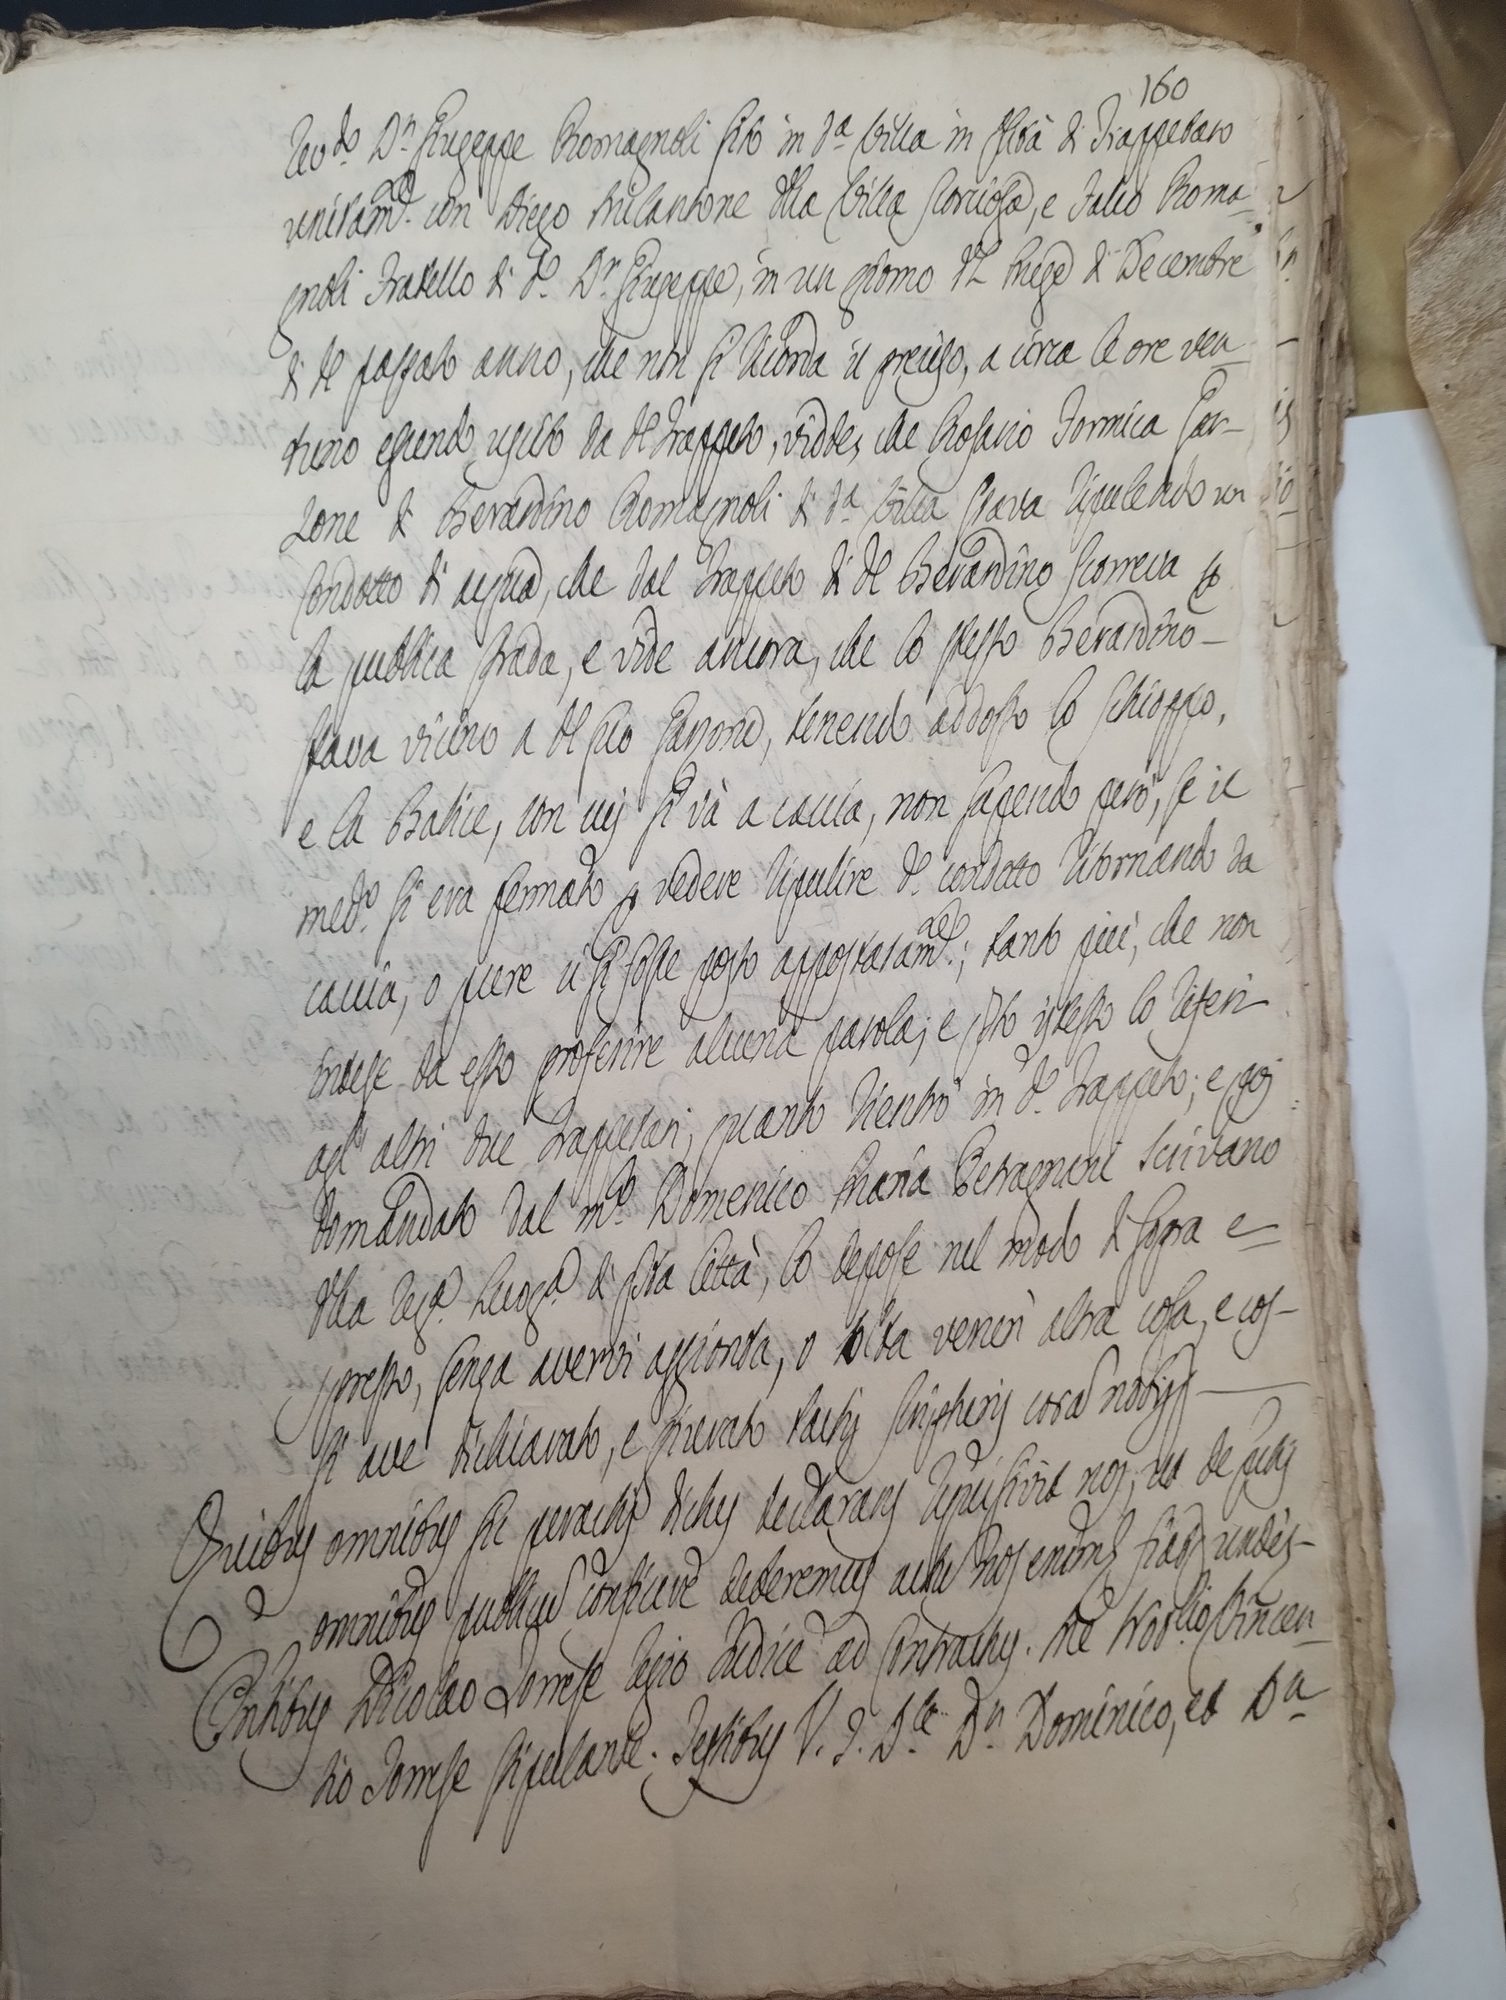 160
Rev.do D.n Giuseppe Romagnoli sito in d.a Villa in qltà di Trappetaro
unitam.e con Diego Milantone della Villa Torricella, e Tulio Roma-
gnoli Fratello di d.o D.n Giuseppe, in un giorno del mese di Decembre
di d.o passato anno, che non si ricorda il preciso, a circa le ore ven-
tuno essendo uscito da d.o Trappeto, vidde, che Rosario Formica Gar-
zone di Berardino Romagnoli di d.a Villa stava ripulendo un
condotto di acqua, che dal Trappeto di d.o Berardino scorreva per
la publica strada, e vide ancora, che lo stesso Berardino
stava vicino a d.o suo Garzone, tenendo addosso lo schioppo,
e la Balice, con cui si và a caccia, non sapendo però, se il
med.o si era fermato per vedere ripulire d.o condotto ritornando da
caccia, o pure ci si fosse posto appostatam.e; tanto più, che non
intese da esso proferire alcuna parola; e q.sto istesso lo riferì
agl'altri due Trappetari, quanto rientrò in d.o Trappeto; e poi
domandato dal m.co Domenico Maria Petragnani Scrivano
della Reg.a Luog.a di q.sta Città, lo depose nel modo di sopra e-
spresso, senza avervi aggionta, o tolta veruna altra cosa, e cos-
sì ave dichiarato, e giurato tactis scripturis corã nobis
Quibus omnibus sic peractis dictus declarans requisivit nos, ut de p.ctis
omnibus publicũ conficere deberemus actũ Nos enim
Pntibus Nicolao Torrese regio Iudice ad contractus. Me Not.io Vincen-
tio Torrese stipulante. Testibus V. J. D.re D.n Dominico, et D.n